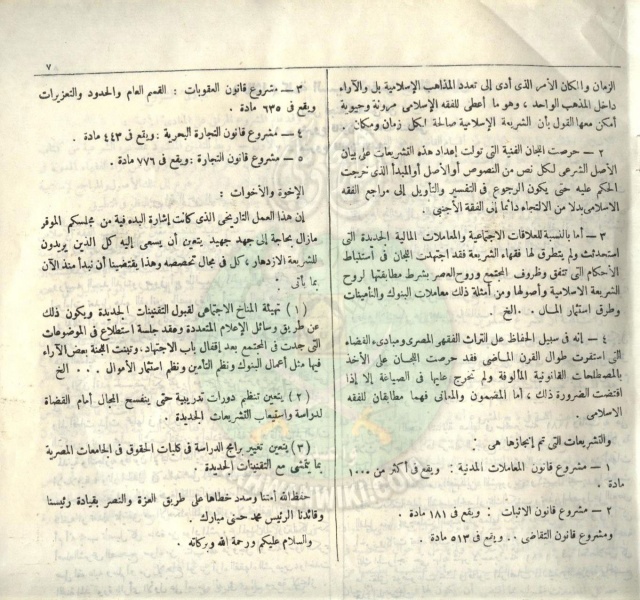 ٧
الزمان والمكان الأمر الذى أدى إلى تعدد المذاهب الإسلامية بل والآراء
داخل المذهب الواحد ، وهو ما أعطى للفقه الإسلامى مرونة وحيوية
أمكن معها القول بأن الشريعة الإسلامية صالحة لكل زمان ومكان .
٢ – حرصت اللجان الفنية التى تولت إعداد هذه التشريعات على بيان
الأصل الشرعى لكل نص من النصوص أو الأصل أو المبدأ الذى خرجت
الحكم عليه حتى يكون الرجوع فى التفسير والتأويل إلى مراجع الفقه
الإسلامى بدلا من الالتجاء دائما إلى الفقه الأجنبى .
٣ – أما بالنسبة للعلاقات الاجتماعية والمعاملات المالية الجديدة التى
استحدثت ولم يتطرق لها فقهاء الشريعة فقد اجتهدت اللجان فى استنباط
الأحكام التى تتفق وظروف المجتمع وروح العصر بشرط مطابقتها لروح
الشريعة الاسلامية وأصولها ومن أمثلة ذلك معاملات البنوك والتأمينات
وطرق استثمار المال . . الخ .
٤ – إنه فى سبيل الحفاظ على التراث الفقهى المصرى ومبادىء القضاء
التى استقرت طوال القرن الماضى فقد حرصت اللجان على الأخذ
بالمصطلحات القانونية المألوفة ولم تخرج عليها فى الصياغة إلا إذا
اقتضت الضرورة ذلك ، أما المضمون والمعانى فهما مطابقان للفقه
الاسلامى .
والتشريعات التى تم إنجازها هى :
١ – مشروع قانون المعاملات المدنية : ويقع فى أكثر من ١٠٠٠
مادة .
٢ – مشروع قانون الاثبات : ويقع فى ١٨١ مادة .
ومشروع قانون التقاضى . . ويقع فى ٥١٣ مادة .
٣ – مشروع قانون العقوبات : القسم العام والحدود والتعزيرات
ويقع فى ٦٣٥ مادة .
٤ – مشروع قانون التجارة البحرية : ويقع فى ٤٤٣ مادة .
٥ – مشروع قانون التجارة : ويقع فى ٧٧٦ مادة .
الإخوة والأخوات :
إن هذا العمل التاريخى الذى كانت إشارة البدء فيه من مجلسكم الموقر
مازال بحاجة إلى جهد جهيد يتعين أن يسعى إليه كل الذين يريدون
للشريعة الازدهار ، كل فى مجال تخصصه وهذا يقتضينا أن نبدأ منذ الآن
بما يأتى :
( ١ ) تهيئة المناخ الاجتماعى لقبول التقنينات الجديدة ويكون ذلك
عن طريق وسائل الإعلام المتعددة وعقد جلسة استطلاع فى الموضوعات
التى جدت فى المجتمع بعد إقفال باب الاجتهاد . وتبنت اللجنة بعض الآراء
فيها مثل أعمال البنوك ونظم التأمين ونظم استثمار الأموال . . . الخ
( ٢ ) يتعين تنظيم دورات تدريبية حتى ينفسح المجال أمام القضاة
لدراسة واستيعاب التشريعات الجديدة .
( ٣ ) يتعين تغيير برامج الدراسة فى كليات الحقوق فى الجامعات المصرية
بما يتمشى مع التقنينات الجديدة .
حفظ الله أمتنا وسدد خطاها على طريق العزة والنصر بقيادة رئيسنا
وقائدنا الرئيس محمد حسنى مبارك .
والسلام عليكم ورحمة الله وبركاته .